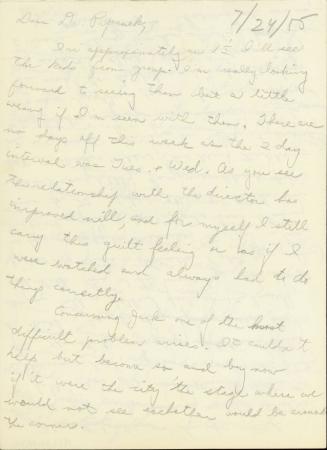 7/24/55
Dear Dr.
I'm approximately an I'll see
the kids from group. I'm really looking
forward to seeing them but a little
wrong if I'm seen with them. There are
no days off this week as the 2 day
interval was Tues. + Wed. As you see
the relationship with the director has
improved still, and for myself I still
carry this guilt feeling or as if I
were watched and always had to do
things correctly.
Concerning Jack one of the most
difficult problem arises. I couldn't
help but become so and boy now
if it were the city, the stage where we
would not see eachother would be around
the corner.